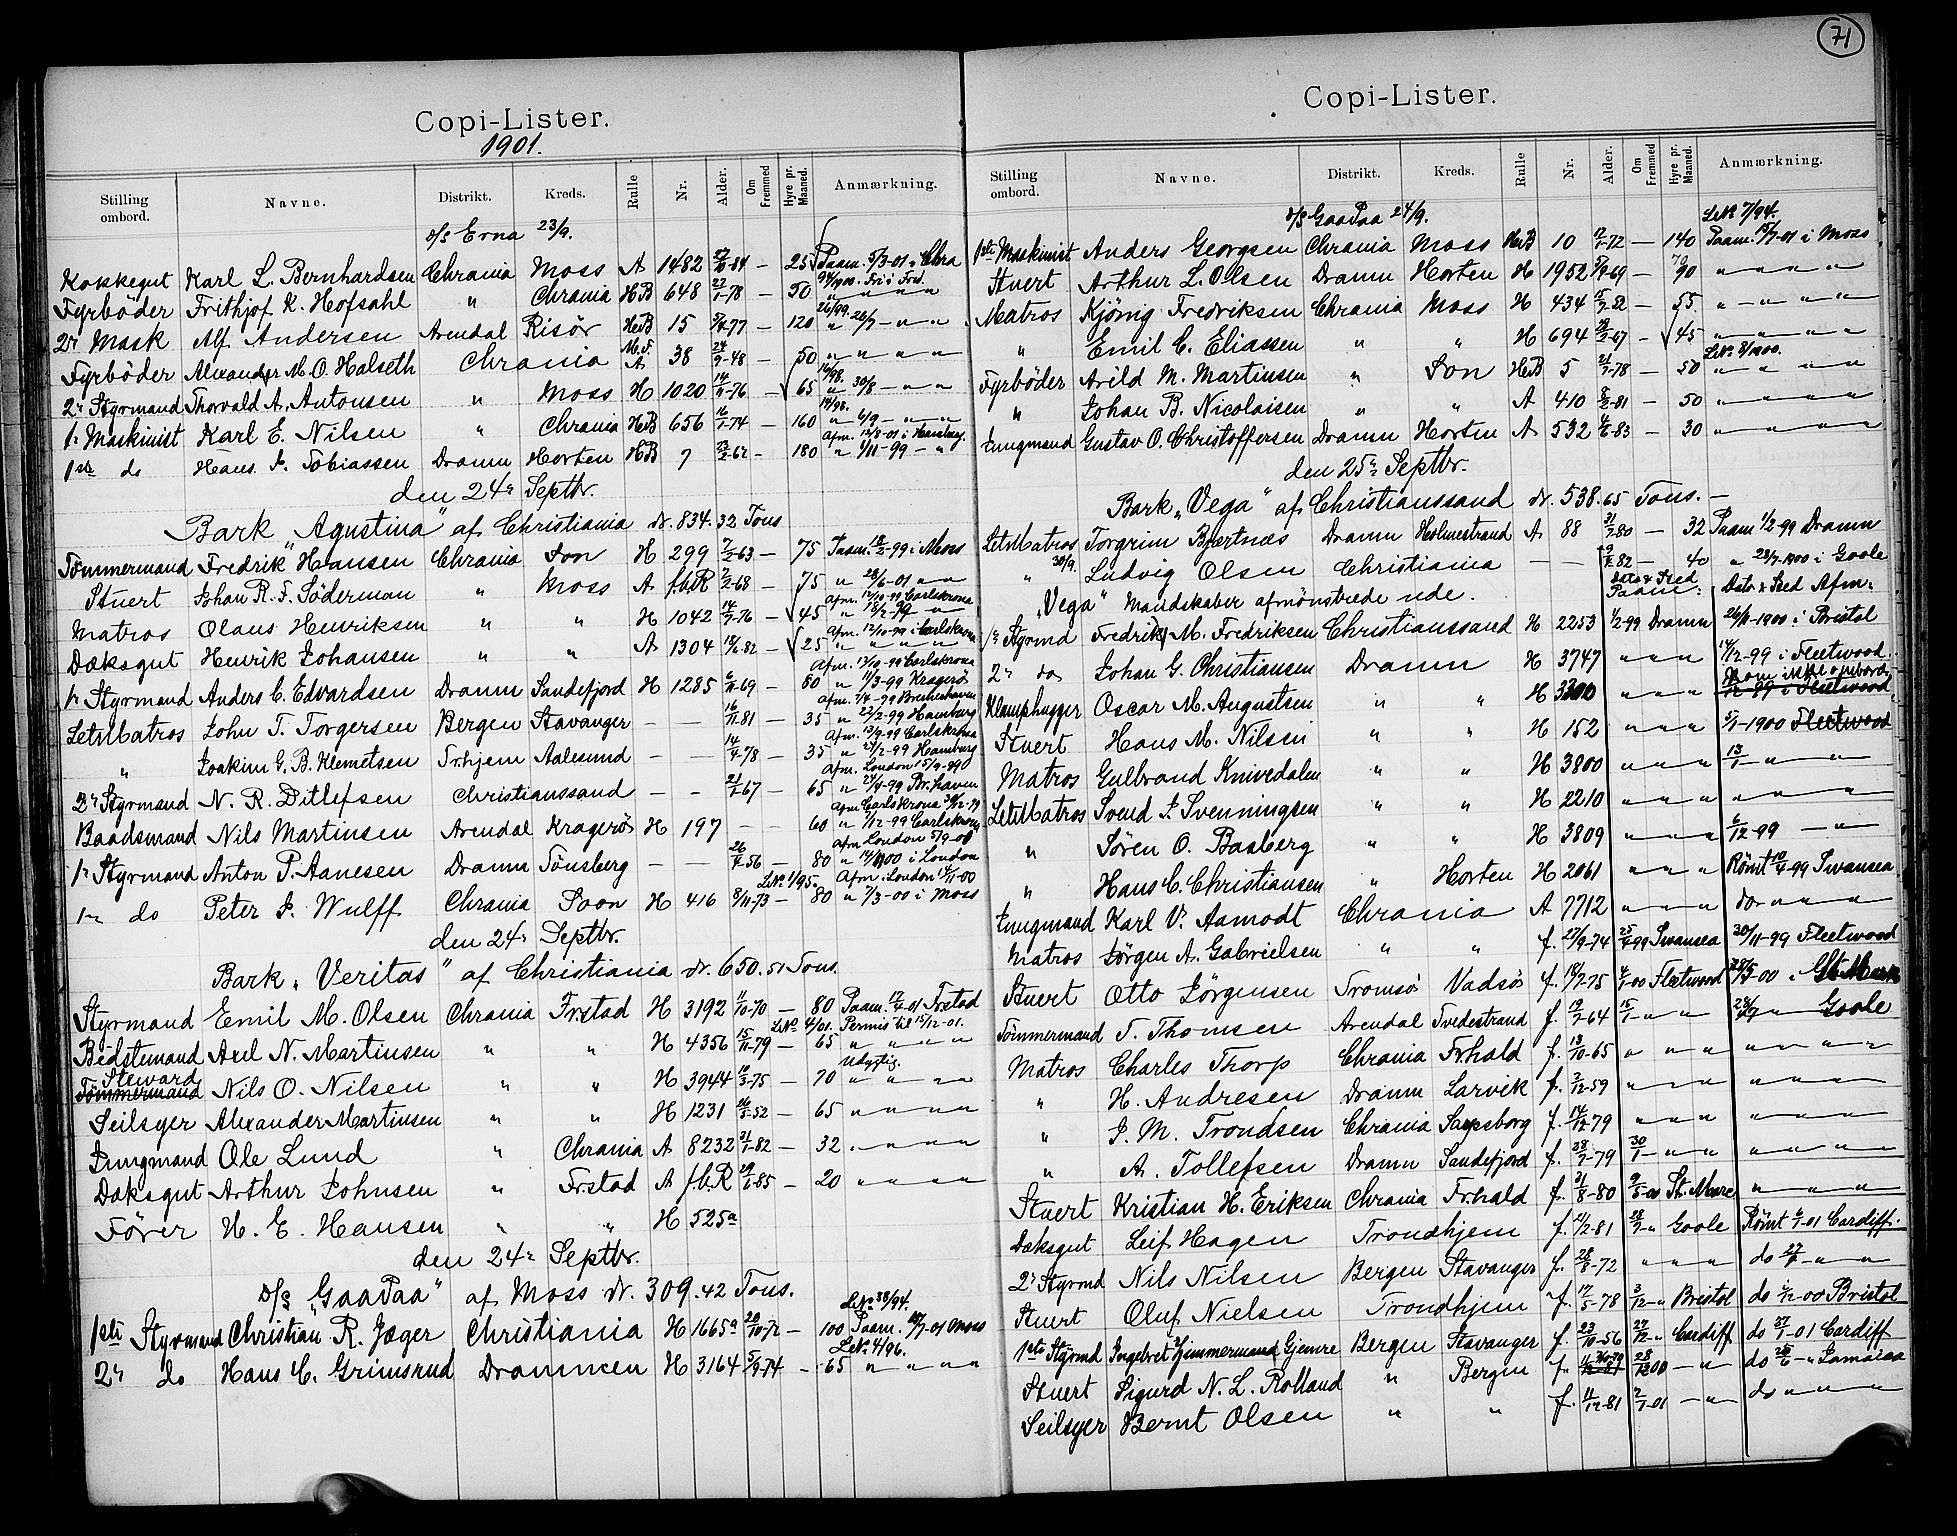 71
Copi-Lister.
1901.
Stilling ombord. Navne. Distrikt. Kreds. Rulle Nr. Alder. Om Fremmed Hyre pr. Maaned. Anmærkning.
D/S Erna 23/9.
Kokkegut Karl L. Bernhardsen Chrania Moss A 1482 84 — 25 Paam. 5/3-01 i Chra
Fyrböder Frithjof K. Hofsahl " Chrania HB 648 27/1-78 — 50
2n Mask Alf Andersen Arendal Risör HB 15 77 — 120 " 26/7 — " "
Fyrböder Alexander M. O. Halseth Chrania M.F. A 38 24/9-48 — 50 " " " "
2n Styrmand Thorvald A. Antonsen " Moss H 1020 76 — 65 " 30/8 — " "
1n Maskinist Karl E. Nilsen " Chrania HB 656 16/1-74 — 160 " 6/9 — " "
Afm. 12/8-01 i Hamburg.
1ste do Hans J. Tobiassen Dramn Horten HB 7 23/2-62 — 180 " 1/11-99 — "
den 24n Septbr.
Bark "Agustina" af Christiania dr. 834.32 Tons
Tömmermand Fredrik Hansen Chrania Son H 299 7/2-63 — 75 Paam. 18/2-99 i Moss
Stuert Johan R. F. Söderman " Moss A f.b.R 7/2-68 — 75 " 28/6-01 " "
Afm. 12/10-99 Carlskrona
Matros Olaus Henriksen " " H 1042 14/9-76 — 45 " 18/2-99 — "
Afm. 12/10-99 i Carlskrona
Dæksgut Henrik Johansen " " A 1304 82 — 25 " " " "
Afm. 12/10-99 Carlskrona
1n Styrmand Anders C. Edvardsen Dramn Sandefjord H 1285 69 — 80 " 11/3-99 Kragerö
Afm. 7/4-99 Bremerhaven
LetMatros John T. Torgersen Bergen Stavanger — — 16/11-81 — 35 " 22/2-99 Hamburg
Afm. 12/9-99 Carlskrona
" Joakim G. B. Klemetsen Tr.hjem Aalesund — — 14/4-78 — 35 " 27/2-99 Hamburg
Afm. London 15/9-990
2n Styrmand N. R. Ditlefsen Christianssand — — 67 — 65 " 24/4-99 Br.haven
Afm Carlskrona
Baadsmand Nils Martinsen Arendal Kragerö H 197 — — 60 " 7/12-99 Carlskrona
Afm London 5/9-00
1n Styrmand Anton P. Aanesen Dramn Tönsberg — — 26/4-56 — 80 " 1900 i London
Let No 1/95. Afm. i London 11-00
1n do Peter J. Wulff Chrania Soon H 416 8/11-73 — 80 " 7/3-00 i Moss
den 24n Septbr.
Bark "Veritas" af Christiania dr. 650.51 Tons.
Styrmand Emil M. Olsen Chrania Fr.stad H 3192 11/10-70 — 80 Paam. 17/4-01 Fr.stad
Let No 4/01. Permis til 15/12-01.
Bedstemand Axel N. Martinsen " " H 4356 15/11-79 — 65 " " " "
Udygtig.
Steward Tömmermand Nils O. Nilsen " " H 3944 75 — 70 " " " "
Seilsyer Alexander Martinsen " " H 1231 26/3-52 — 65 " " " "
Jungmand Ole Lund " Chrania A 8232 21/1-82 — 32 " " " "
Dæksgut Arthur Johnsen " Fr.stad A f.b.R 19/6-85 — 20 " " " "
Förer H. E. Hansen " " H 525a
den 24n Septbr.
D/S "GaaPaa" af Moss dr. 309.42 Tons.
Let No 38/94.
1ste Styrmand Christian R. Jæger Christiania H 1665a 20/10-72 — 100 Paam. /7-01 Moss
Let No 4/96.
2n do Hans C. Grimsrud Drammen H 3164 5/9-74 — 65 " " " "
Copi-Lister.
Stilling ombord. Navne. Distrikt. Kreds. Rulle Nr. Alder. Om Fremmed Hyre pr. Maaned. Anmærkning.
D/S GaaPaa 24/9. Let No 7/94.
1ste Maskinist Anders Georgsen Chrania Moss HB 10 72 — 140 Paam. /7-01 i Moss
Stuert Arthur L. Olsen Dramn Horten H 1952 69 — 90 " " " "
Matros Kjönig Fredriksen Chrania Moss H 434 82 — 55 " " " "
" Emil C. Eliassen " " H 694 67 — 45 " " " "
Let No 8/1900.
Fyrböder Arild M. Martinsen " Son HB 5 21/7-78 — 50 " " " "
" Johan B. Nicolaisen " " A 410 8/2-81 — 50 " " " "
Jungmand Gustav O. Christoffersen Dramn Horten A 532 83 — 30 " " " "
den 25n Septbr.
Bark "Vega" af Christianssand dr. 538.65 Tons.
LetMatros Torgrim Bjertnæs Dramn Holmestrand A 88 31/7-80 — 32 Paam 1/2-99 Dramn
" 30/9. Ludvig Olsen Christiania — — 82 — 40 " 28/7-1900 i Goole
"Vega" Mandskaber afmönstrede ude. Dato & Sted Paam: Dato & Sted Afm:
1n Styrmd Fredrik M. Fredriksen Christianssand H 2253 1/2-99 Dramn 26/11-1900 i Bristol
2n do Johan G. Christiansen Dramn H 3747 " " " 14/12-99 i Fleetwood.
Klamphugger Oscar M. Augustsen " " H 3300 " " " 12-89 i Fleetwood
Stuert Hans M. Nilsen " " H 152 " " " 5/1-1900 Fleetwood
Matros Gulbrand Knivedalen " " H 3800 " " " 13/1 — " "
LetMatros Svend J. Svenningsen " " H 2210 " " " " " "
" Sören O. Basberg " " H 3809 " " " 6/12-99 — "
" Hans C. Christiansen " Horten H 2061 " " " Römt 10/4-99 Swansea
Jungmand Karl V. Aamodt Chrania A 7712 " " " do " " "
Matros Jörgen A. Gabrielsen " " f. 27/9-74 25/4-99 Swansea 30/11-99 Fleetwood
Stuert Otto Jörgensen Tromsö Vadsö f. 18/7-75 1-00 Fleetwood -00
Tömmermand T. Thomsen Arendal Tvedestrand f. 19/7-64 15/1 " " 28/7 " Goole
Matros Charles Thorp Chrania Fr.hald f. 13/10-65 " " " " " " "
" H. Andresen Dramn Larvik f. 2/12-59 " " " " " " "
" J. M. Trondsen Chrania Sarpsborg f. 14/12-79 " " " " " " "
" A. Tollefsen Dramn Sandefjord f. 28/7-79 30/1 — " " " " " "
Stuert Kristian H. Eriksen Chrania Fr.hald f. 31/8-80 9/5-00 St. Marc " " " "
Dæksgut Leif Hagen Trondhjem f. 21/2-81 28/7-" Goole Römt 6/1-01 Cardiff.
2n Styrmd Nils Nilsen Bergen Stavanger f. 28/8-72 " " " do 27 " "
Stuert Oluf Nielsen Trondhjem f. 17/5-78 3/12-" Bristol do /12-00 Bristol
1ste Styrmd Ingebret Zimmermand Gjemre Bergen Stavanger f. 23/10-56 27/12-" Cardiff do /1-01 Cardiff
Stuert Sigurd N. L. Rolland " Bergen f. 28/12-00 — " do
Seilsyer Bernt Olsen " " f. 11/12-81 2/1-01 — " do " " "